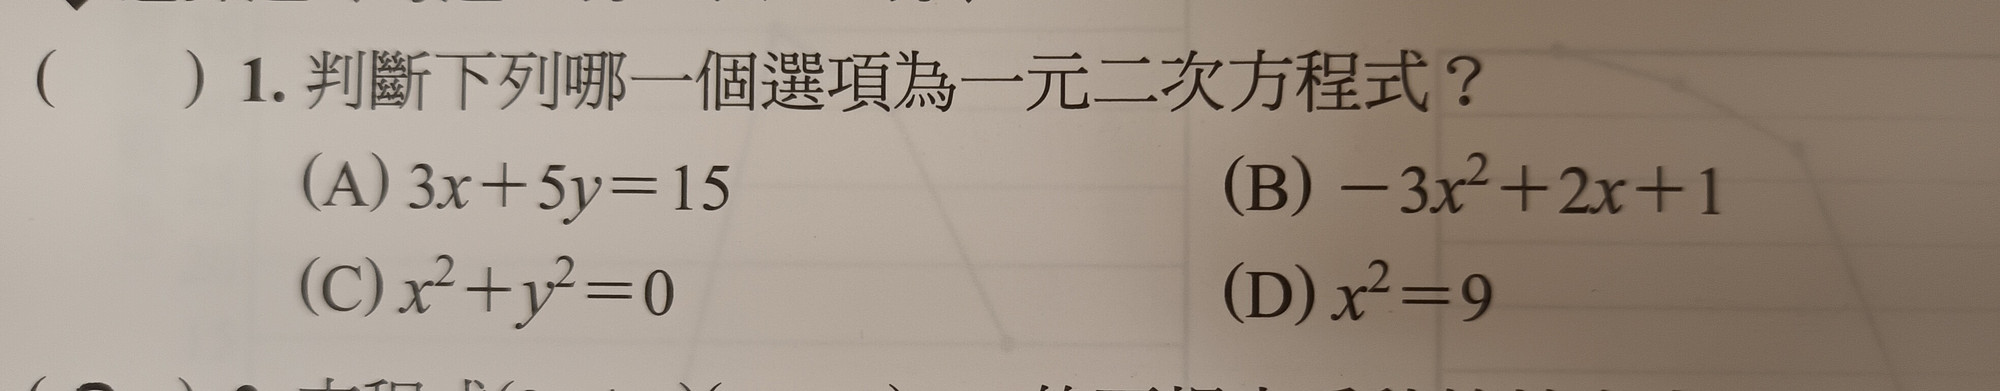 (　　) 1. 判斷下列哪一個選項為一元二次方程式？
(A) 3x＋5y＝15　(B) －3x²＋2x＋1
(C) x²＋y²＝0　(D) x²＝9